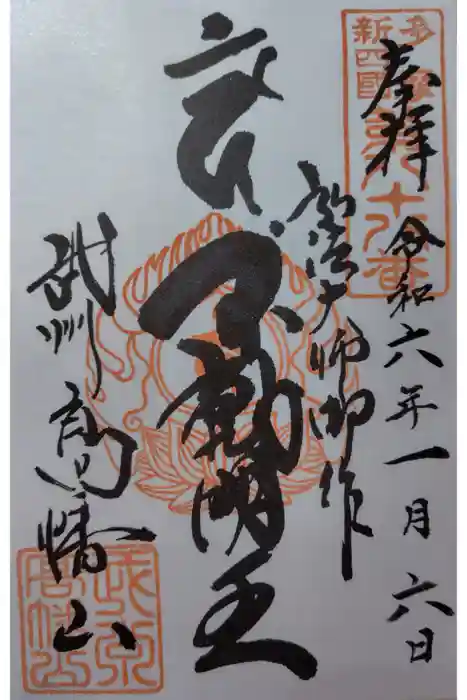 多摩
新四國
第八十八番
奉拝
令和六年一月六日
弘法大師御作
不動明王
武州
高幡山
武州
高幡山